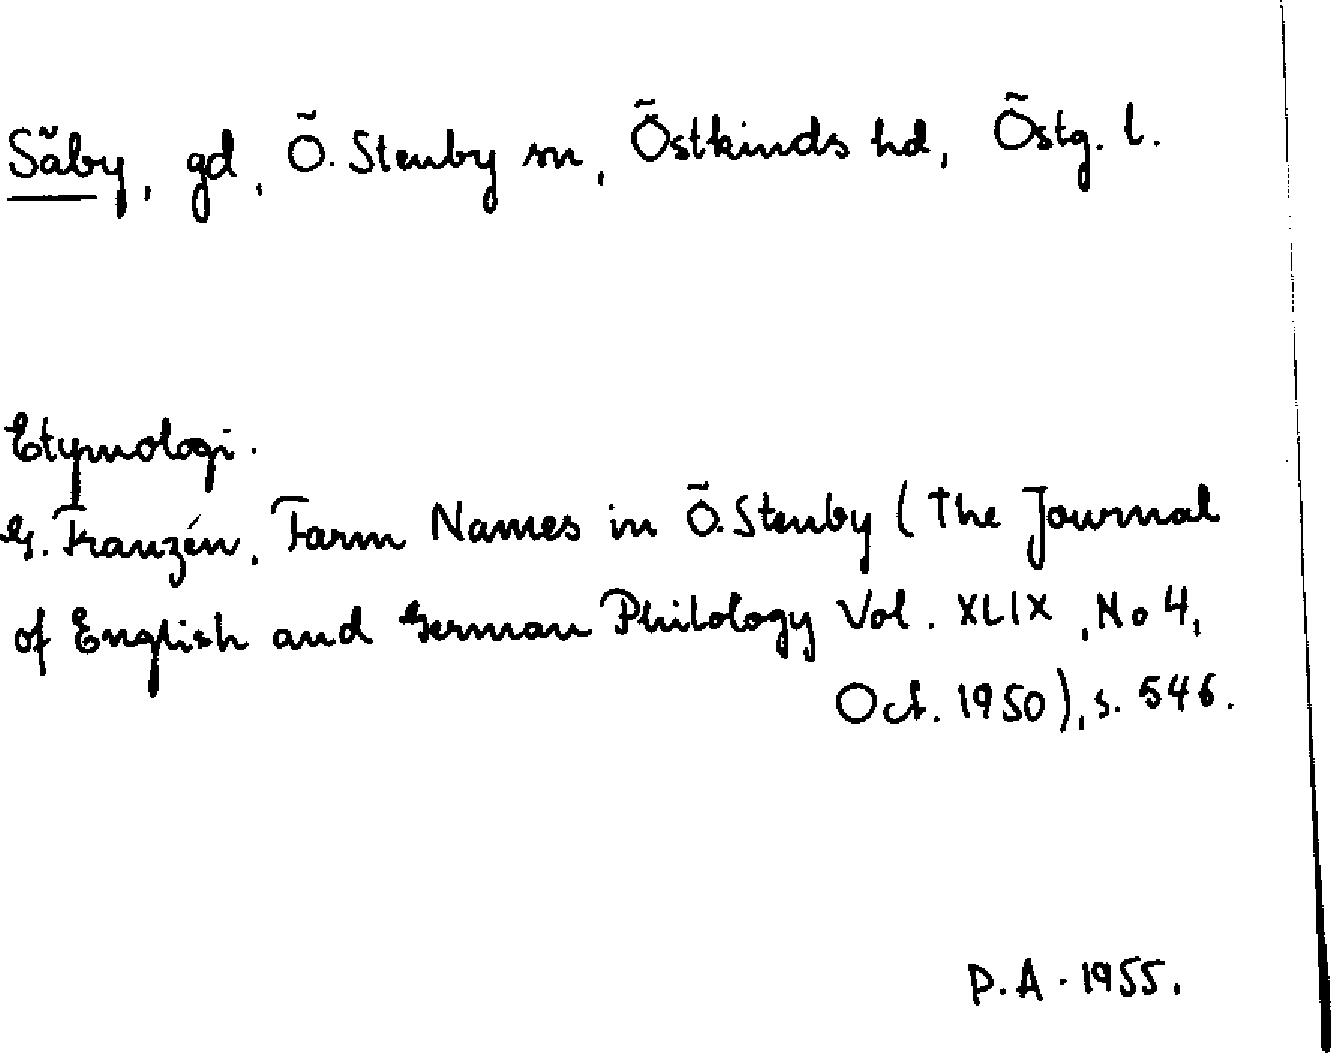 Säby, gd, Ö. Stenby sn, Östkinds hd, Östg. l.
Etymologi.
G. Franzén, Farm Names in Ö. Stenby (The Journal
of English and German Philology Vol. XLIX, No 4,
Oct. 1950), s. 546.
P.A. 1955.